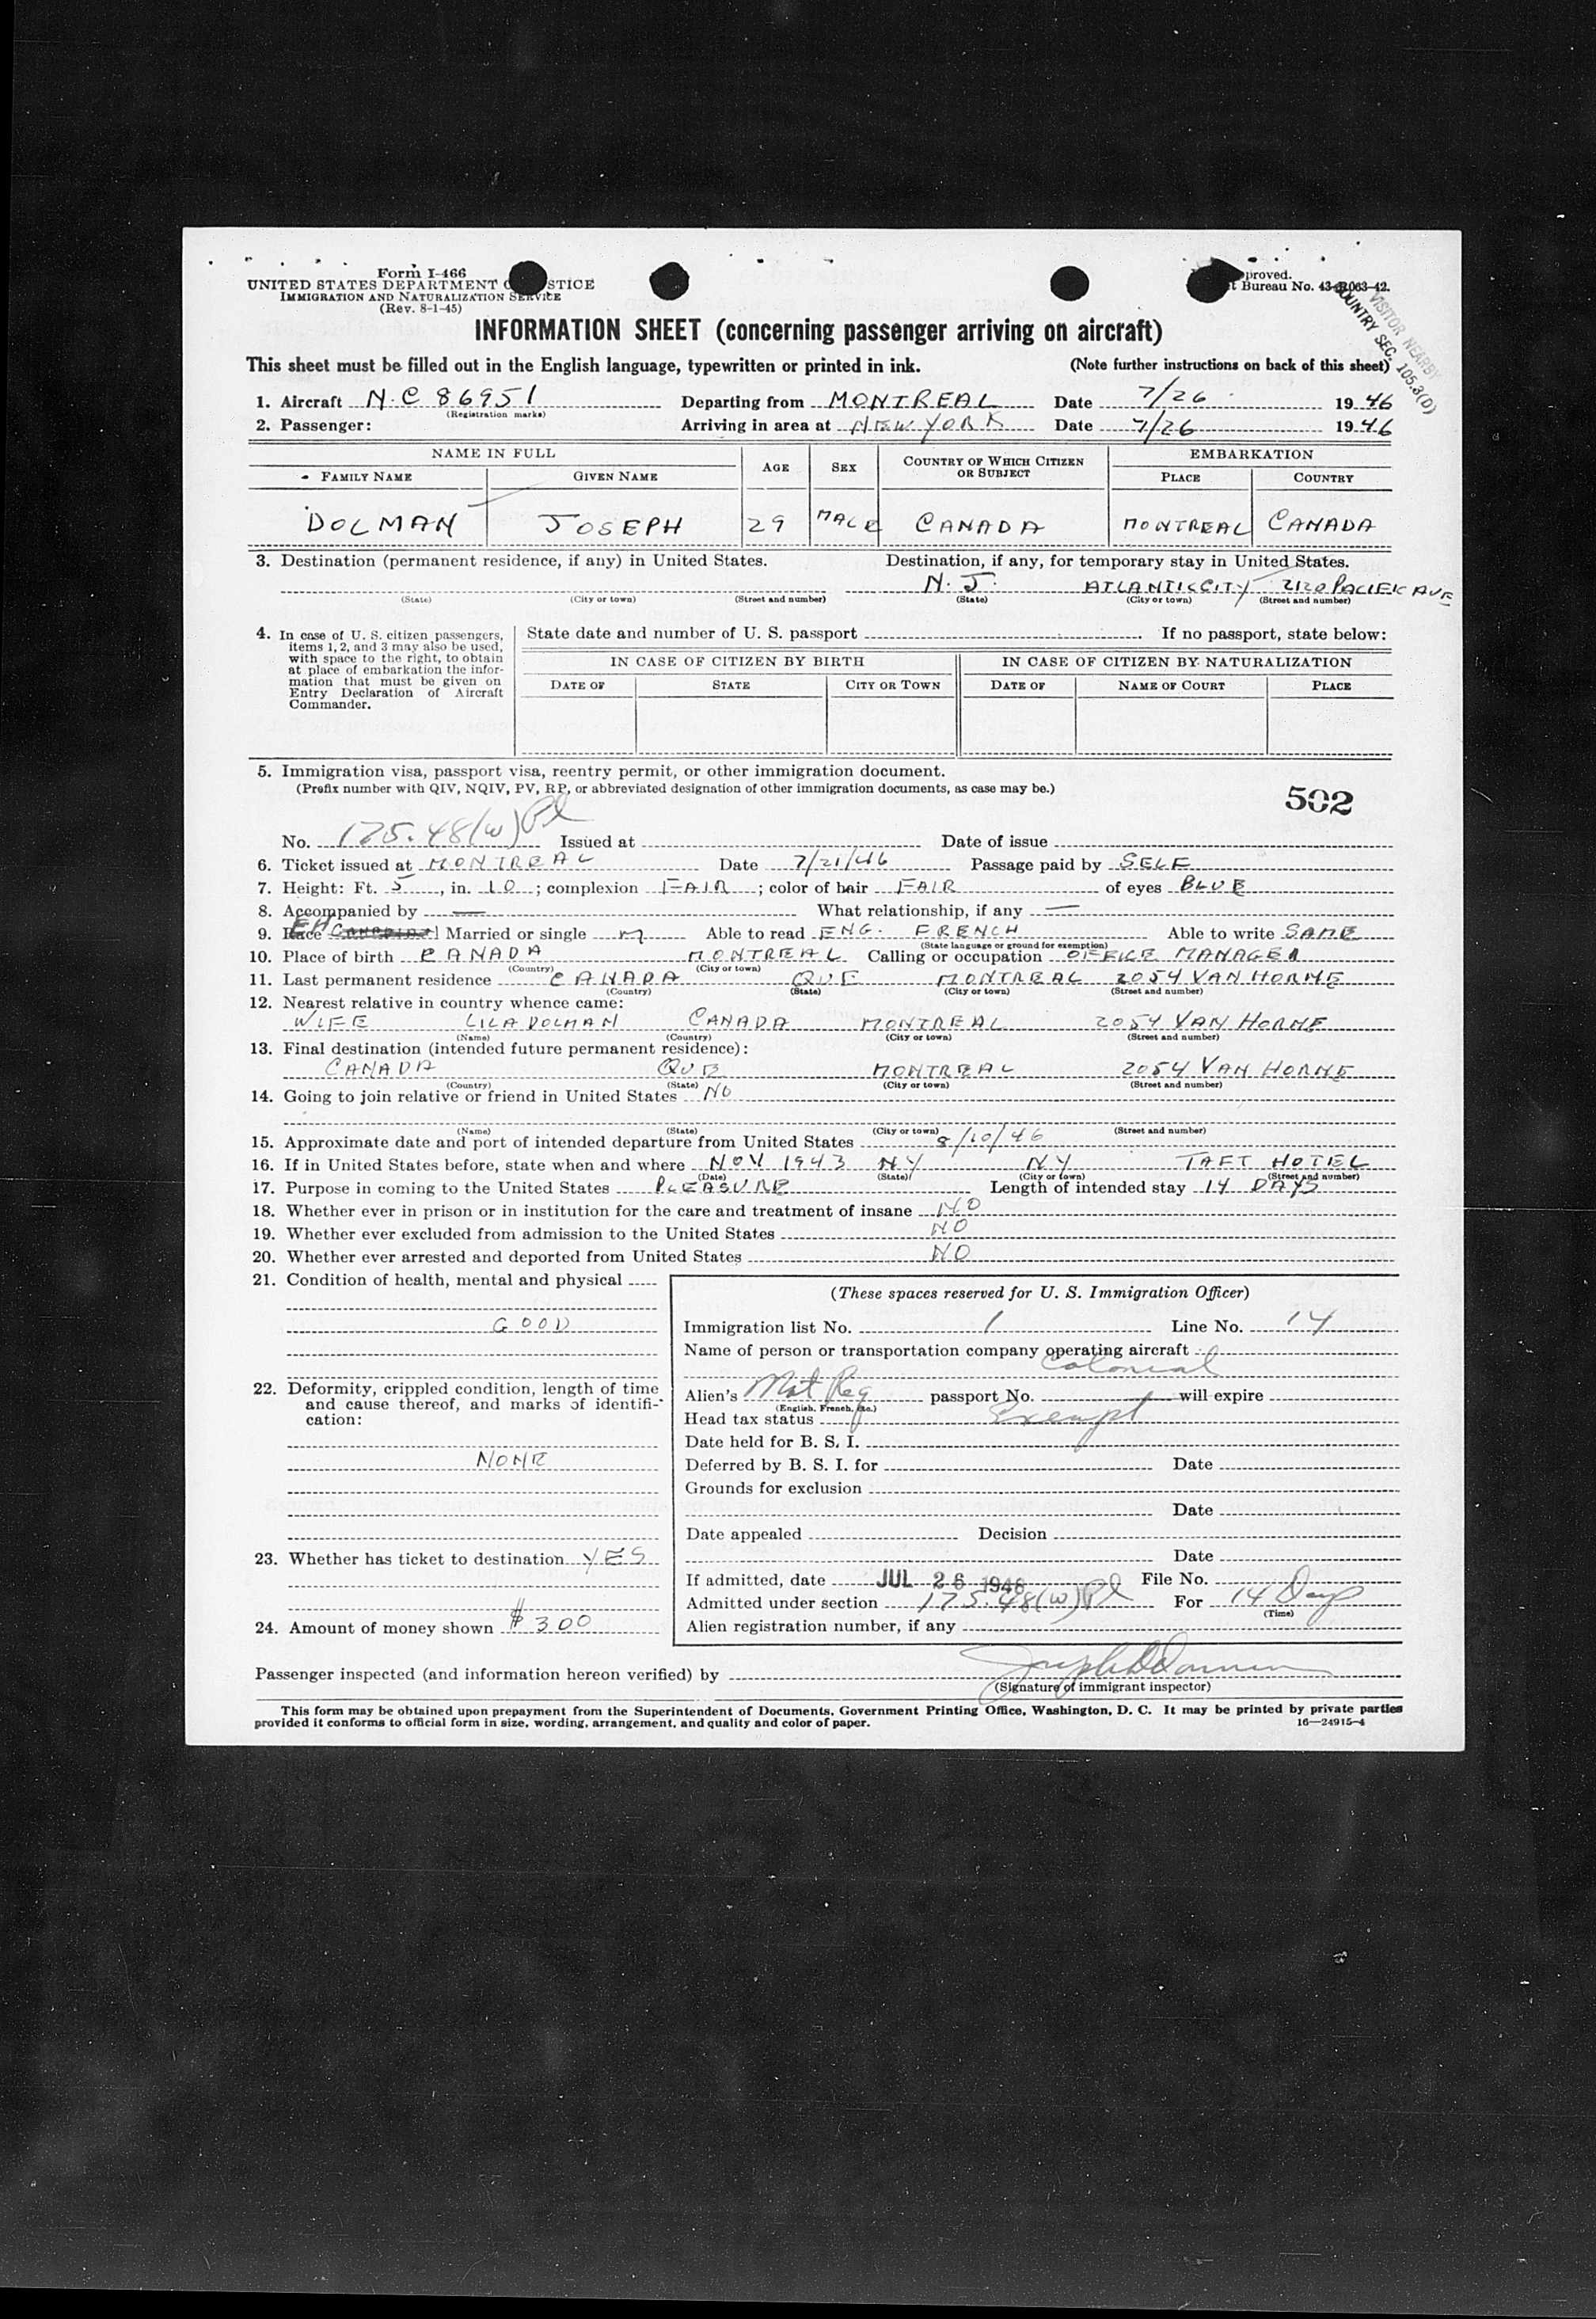 Form I-466
UNITED STATES DEPARTMENT STICE
IMMIGRATION AND NATURALIZATION SERVICE
(Rev. 8-1-45)
proved.
t Bureau No. 43-R063-42.
VISITOR NEARBY
COUNTRY SEC. 105.3(D)
INFORMATION SHEET (concerning passenger arriving on aircraft)
This sheet must be filled out in the English language, typewritten or printed in ink. (Note further instructions on back of this sheet)
1. Aircraft N.C 86951 Departing from MONTREAL Date 7/26 1946
(Registration marks)
2. Passenger: Arriving in area at NEW YORK Date 7/26 1946
NAME IN FULL AGE SEX COUNTRY OF WHICH CITIZEN OR SUBJECT EMBARKATION
FAMILY NAME GIVEN NAME PLACE COUNTRY
DOLMAN JOSEPH 29 MALE CANADA MONTREAL CANADA
3. Destination (permanent residence, if any) in United States. Destination, if any, for temporary stay in United States.
N.J. ATLANTIC CITY 2120 AVE
(State) (City or town) (Street and number) (State) (City or town) (Street and number)
4. In case of U. S. citizen passengers, items 1, 2, and 3 may also be used, with space to the right, to obtain at place of embarkation the information that must be given on Entry Declaration of Aircraft Commander.
State date and number of U. S. passport If no passport, state below:
IN CASE OF CITIZEN BY BIRTH IN CASE OF CITIZEN BY NATURALIZATION
DATE OF STATE CITY OR TOWN DATE OF NAME OF COURT PLACE
5. Immigration visa, passport visa, reentry permit, or other immigration document.
(Prefix number with QIV, NQIV, PV, RP, or abbreviated designation of other immigration documents, as case may be.)
502
No. 175.48(w)Pl Issued at Date of issue
6. Ticket issued at MONTREAL Date 7/21/46 Passage paid by SELF
7. Height: Ft. 5, in. 10; complexion FAIR; color of hair FAIR of eyes BLUE
8. Accompanied by — What relationship, if any —
9. Race Married or single M Able to read ENG. FRENCH Able to write SAME
(State language or ground for exemption)
10. Place of birth CANADA MONTREAL Calling or occupation OFFICE MANAGER
(Country) (City or town)
11. Last permanent residence CANADA QUE MONTREAL 2054 VAN HORNE
(Country) (State) (City or town) (Street and number)
12. Nearest relative in country whence came:
WIFE LILA DOLMAN CANADA MONTREAL 2054 VAN HORNE
(Name) (Country) (City or town) (Street and number)
13. Final destination (intended future permanent residence):
CANADA QUE MONTREAL 2054 VAN HORNE
(Country) (State) (City or town) (Street and number)
14. Going to join relative or friend in United States NO
(Name) (State) (City or town) (Street and number)
15. Approximate date and port of intended departure from United States 8/10/46
16. If in United States before, state when and where NOV 1943 NY NY TAFT HOTEL
(Date) (State) (City or town) (Street and number)
17. Purpose in coming to the United States PLEASURE Length of intended stay 14 DAYS
18. Whether ever in prison or in institution for the care and treatment of insane NO
19. Whether ever excluded from admission to the United States NO
20. Whether ever arrested and deported from United States NO
21. Condition of health, mental and physical
GOOD
22. Deformity, crippled condition, length of time and cause thereof, and marks of identification:
NONE
23. Whether has ticket to destination YES
24. Amount of money shown $300
(These spaces reserved for U. S. Immigration Officer)
Immigration list No. 1 Line No. 14
Name of person or transportation company operating aircraft
Colonial
Alien's Not Req passport No. will expire
(English, French, etc.)
Head tax status Exempt
Date held for B. S. I.
Deferred by B. S. I. for Date
Grounds for exclusion
Date
Date appealed Decision
Date
If admitted, date JUL 26 1946 File No.
Admitted under section 175.48(w)Pl For 14 Days
(Time)
Alien registration number, if any
Passenger inspected (and information hereon verified) by
(Signature of immigrant inspector)
This form may be obtained upon prepayment from the Superintendent of Documents, Government Printing Office, Washington, D. C. It may be printed by private parties
provided it conforms to official form in size, wording, arrangement, and quality and color of paper. 16—24915-4